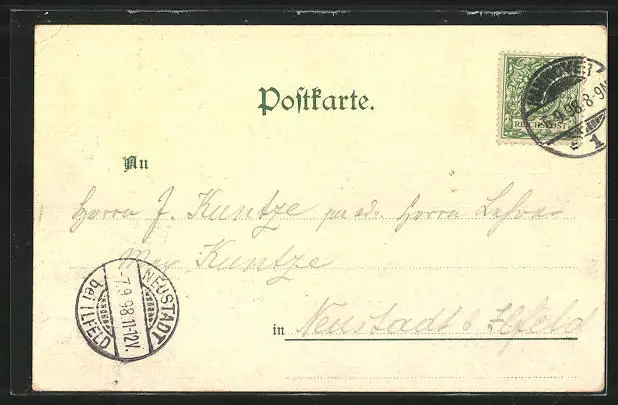 Postkarte.
REICHSPOST
HANNOVER
6.9.98.8-9N
1
An
Herrn J. Kuntze per adr. Herrn Lehrer
Max Kuntze
in Neustadt b Ilfeld
NEUSTADT
7.9.98.11-12V.
bei ILFELD